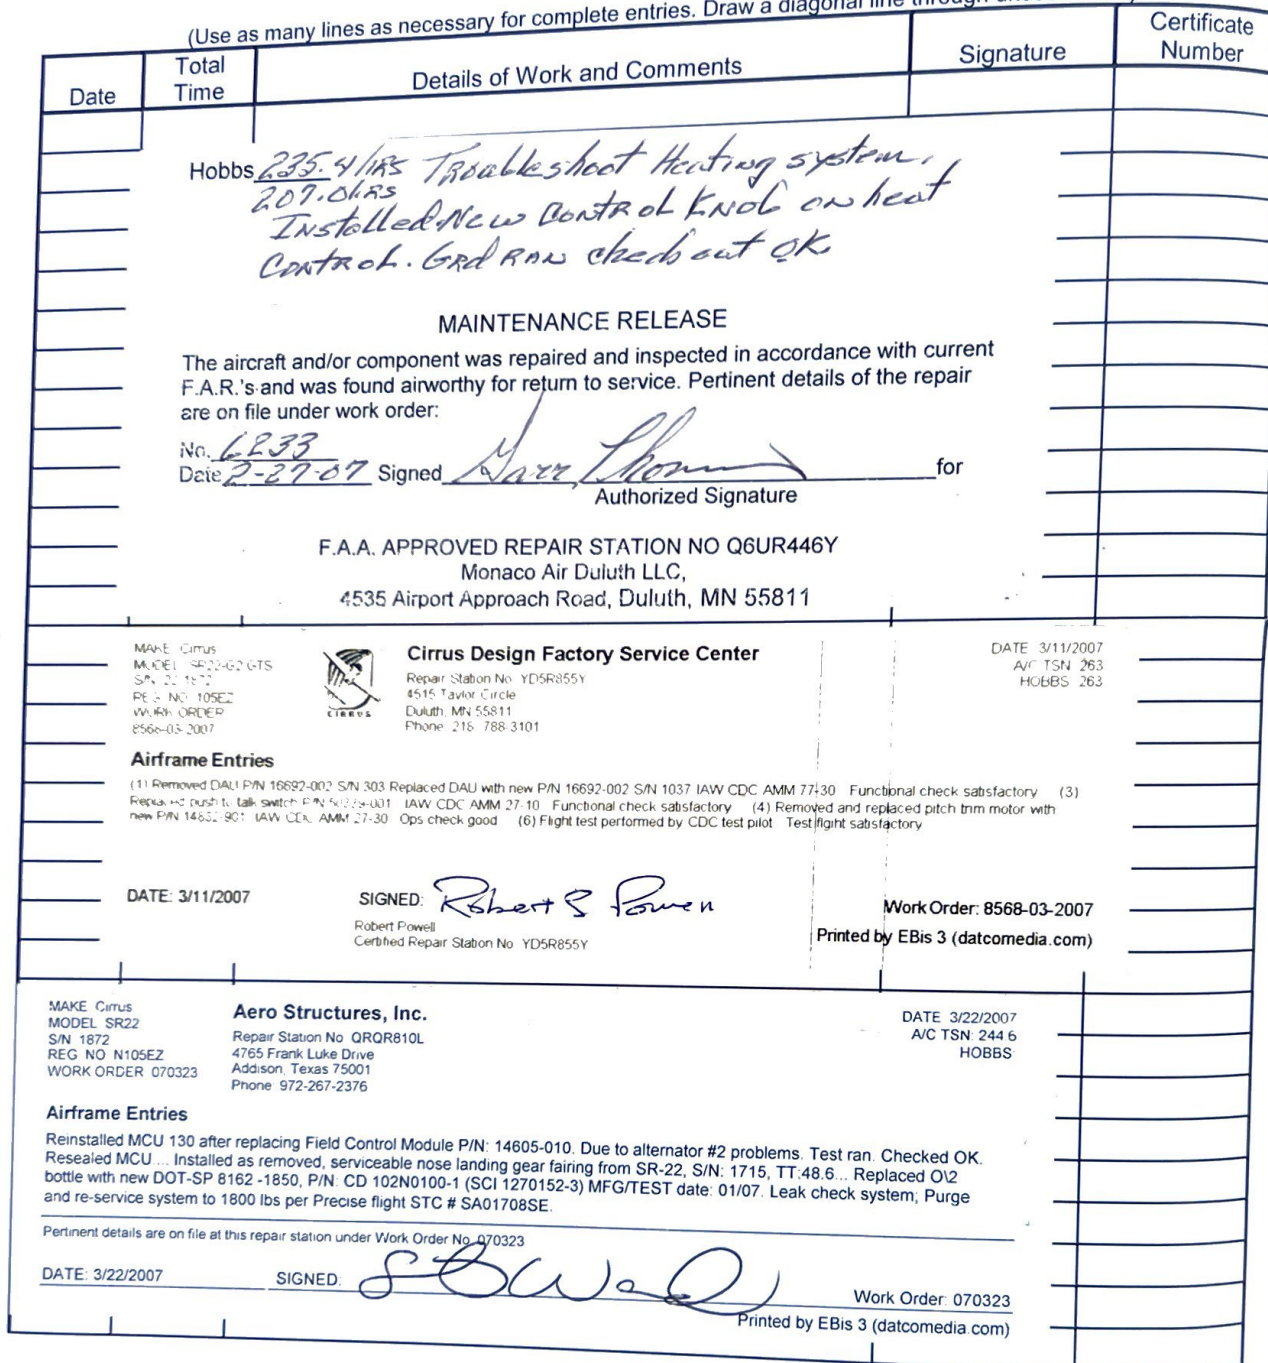 (Use as many lines as necessary for complete entries. Draw a diagonal line through
Date
Total Time
Details of Work and Comments
Signature
Certificate Number
Hobbs 235.4 HRS Troubleshoot Heating system.
207.0 HRS
Installed New Control Knob on heat
Control. Grd Run checks out OK
MAINTENANCE RELEASE
The aircraft and/or component was repaired and inspected in accordance with current
F.A.R.'s and was found airworthy for return to service. Pertinent details of the repair
are on file under work order:
No. 6233
Date 2-27-07 Signed for
Authorized Signature
F.A.A. APPROVED REPAIR STATION NO Q6UR446Y
Monaco Air Duluth LLC,
4535 Airport Approach Road, Duluth, MN 55811
MAKE Cirrus
MODEL SR22-G2 GTS
S/N 22 1872
REG NO 105EZ
WORK ORDER
8568-03-2007
CIRRUS
Cirrus Design Factory Service Center
Repair Station No YD5R855Y
4515 Taylor Circle
Duluth, MN 55811
Phone 218 788-3101
DATE 3/11/2007
A/C TSN 263
HOBBS 263
Airframe Entries
(1) Removed DAU P/N 16692-002 S/N 303 Replaced DAU with new P/N 16692-002 S/N 1037 IAW CDC AMM 77-30 Functional check satisfactory (3)
Replaced push to talk switch P/N IAW CDC AMM 27-10 Functional check satisfactory (4) Removed and replaced pitch trim motor with
new P/N 14832-901 IAW CDC AMM 27-30 Ops check good (6) Flight test performed by CDC test pilot Test flight satisfactory
DATE: 3/11/2007
SIGNED: Robert S Powell
Robert Powell
Certified Repair Station No YD5R855Y
Work Order: 8568-03-2007
Printed by EBis 3 (datcomedia.com)
MAKE Cirrus
MODEL SR22
S/N 1872
REG NO N105EZ
WORK ORDER 070323
Aero Structures, Inc.
Repair Station No QRQR810L
4765 Frank Luke Drive
Addison, Texas 75001
Phone 972-267-2376
DATE 3/22/2007
A/C TSN: 244.6
HOBBS
Airframe Entries
Reinstalled MCU 130 after replacing Field Control Module P/N: 14605-010. Due to alternator #2 problems. Test ran. Checked OK.
Resealed MCU.... Installed as removed, serviceable nose landing gear fairing from SR-22, S/N: 1715, TT:48.6... Replaced O\2
bottle with new DOT-SP 8162 -1850, P/N: CD 102N0100-1 (SCI 1270152-3) MFG/TEST date: 01/07. Leak check system; Purge
and re-service system to 1800 lbs per Precise flight STC # SA01708SE.
Pertinent details are on file at this repair station under Work Order No. 070323
DATE: 3/22/2007
SIGNED:
Work Order: 070323
Printed by EBis 3 (datcomedia.com)